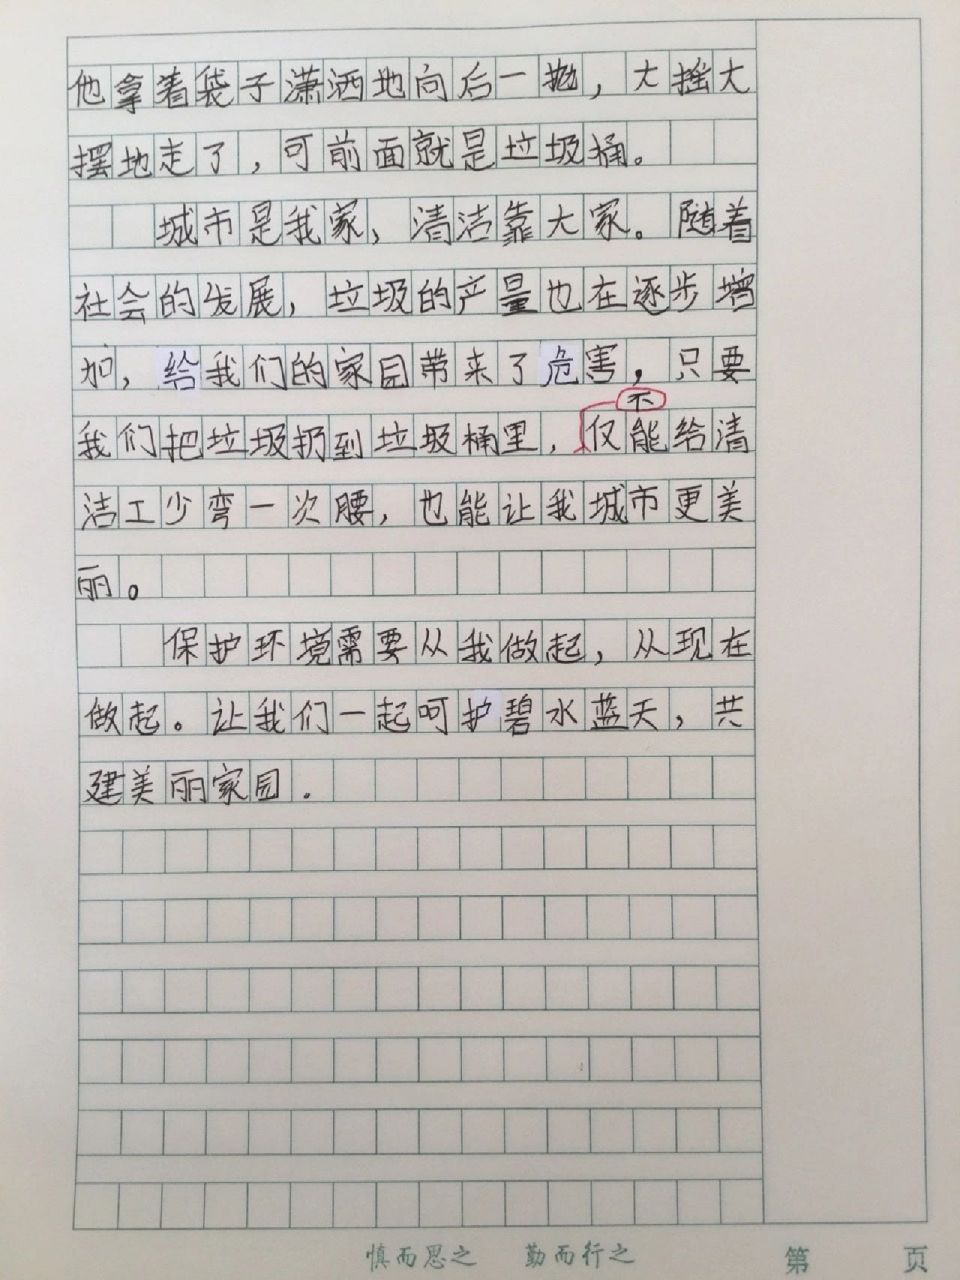 他拿着袋子潇洒地向后一抛，大摇大
摆地走了，可前面就是垃圾桶。
城市是我家，清洁靠大家。随着
社会的发展，垃圾的产量也在逐步增
加，给我们的家园带来了危害，只要
不
我们把垃圾扔到垃圾桶里，仅能给清
洁工少弯一次腰，也能让我城市更美
丽。
保护环境需要从我做起，从现在
做起。让我们一起呵护碧水蓝天，共
建美丽家园．
慎而思之 勤而行之 第 页